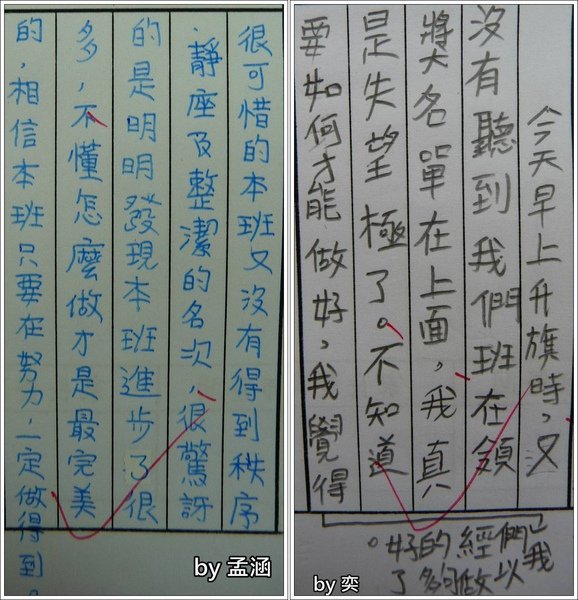 很可惜的本班又沒有得到秩序
、靜座及整潔的名次，很驚訝
的是明明發現本班進步了很
多，不懂怎麼做才是最完美
的，相信本班只要在努力，一定做得到。
by 孟涵
今天早上升旗時，又
沒有聽到我們班在領
獎大名單在上面，我真
是失望極了。不知道
要如何才能做好，我覺得
我們已經做的
以夠多了
好。
by 奕